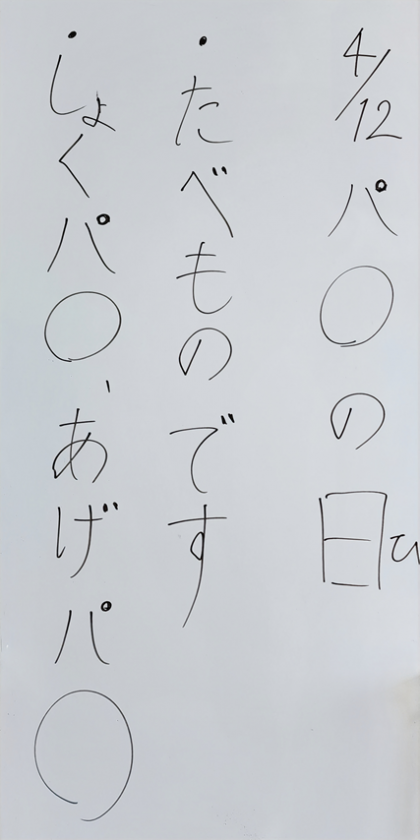 4/12パ〇の日ひ
・たべものです
・しょくパ〇、あげパ〇